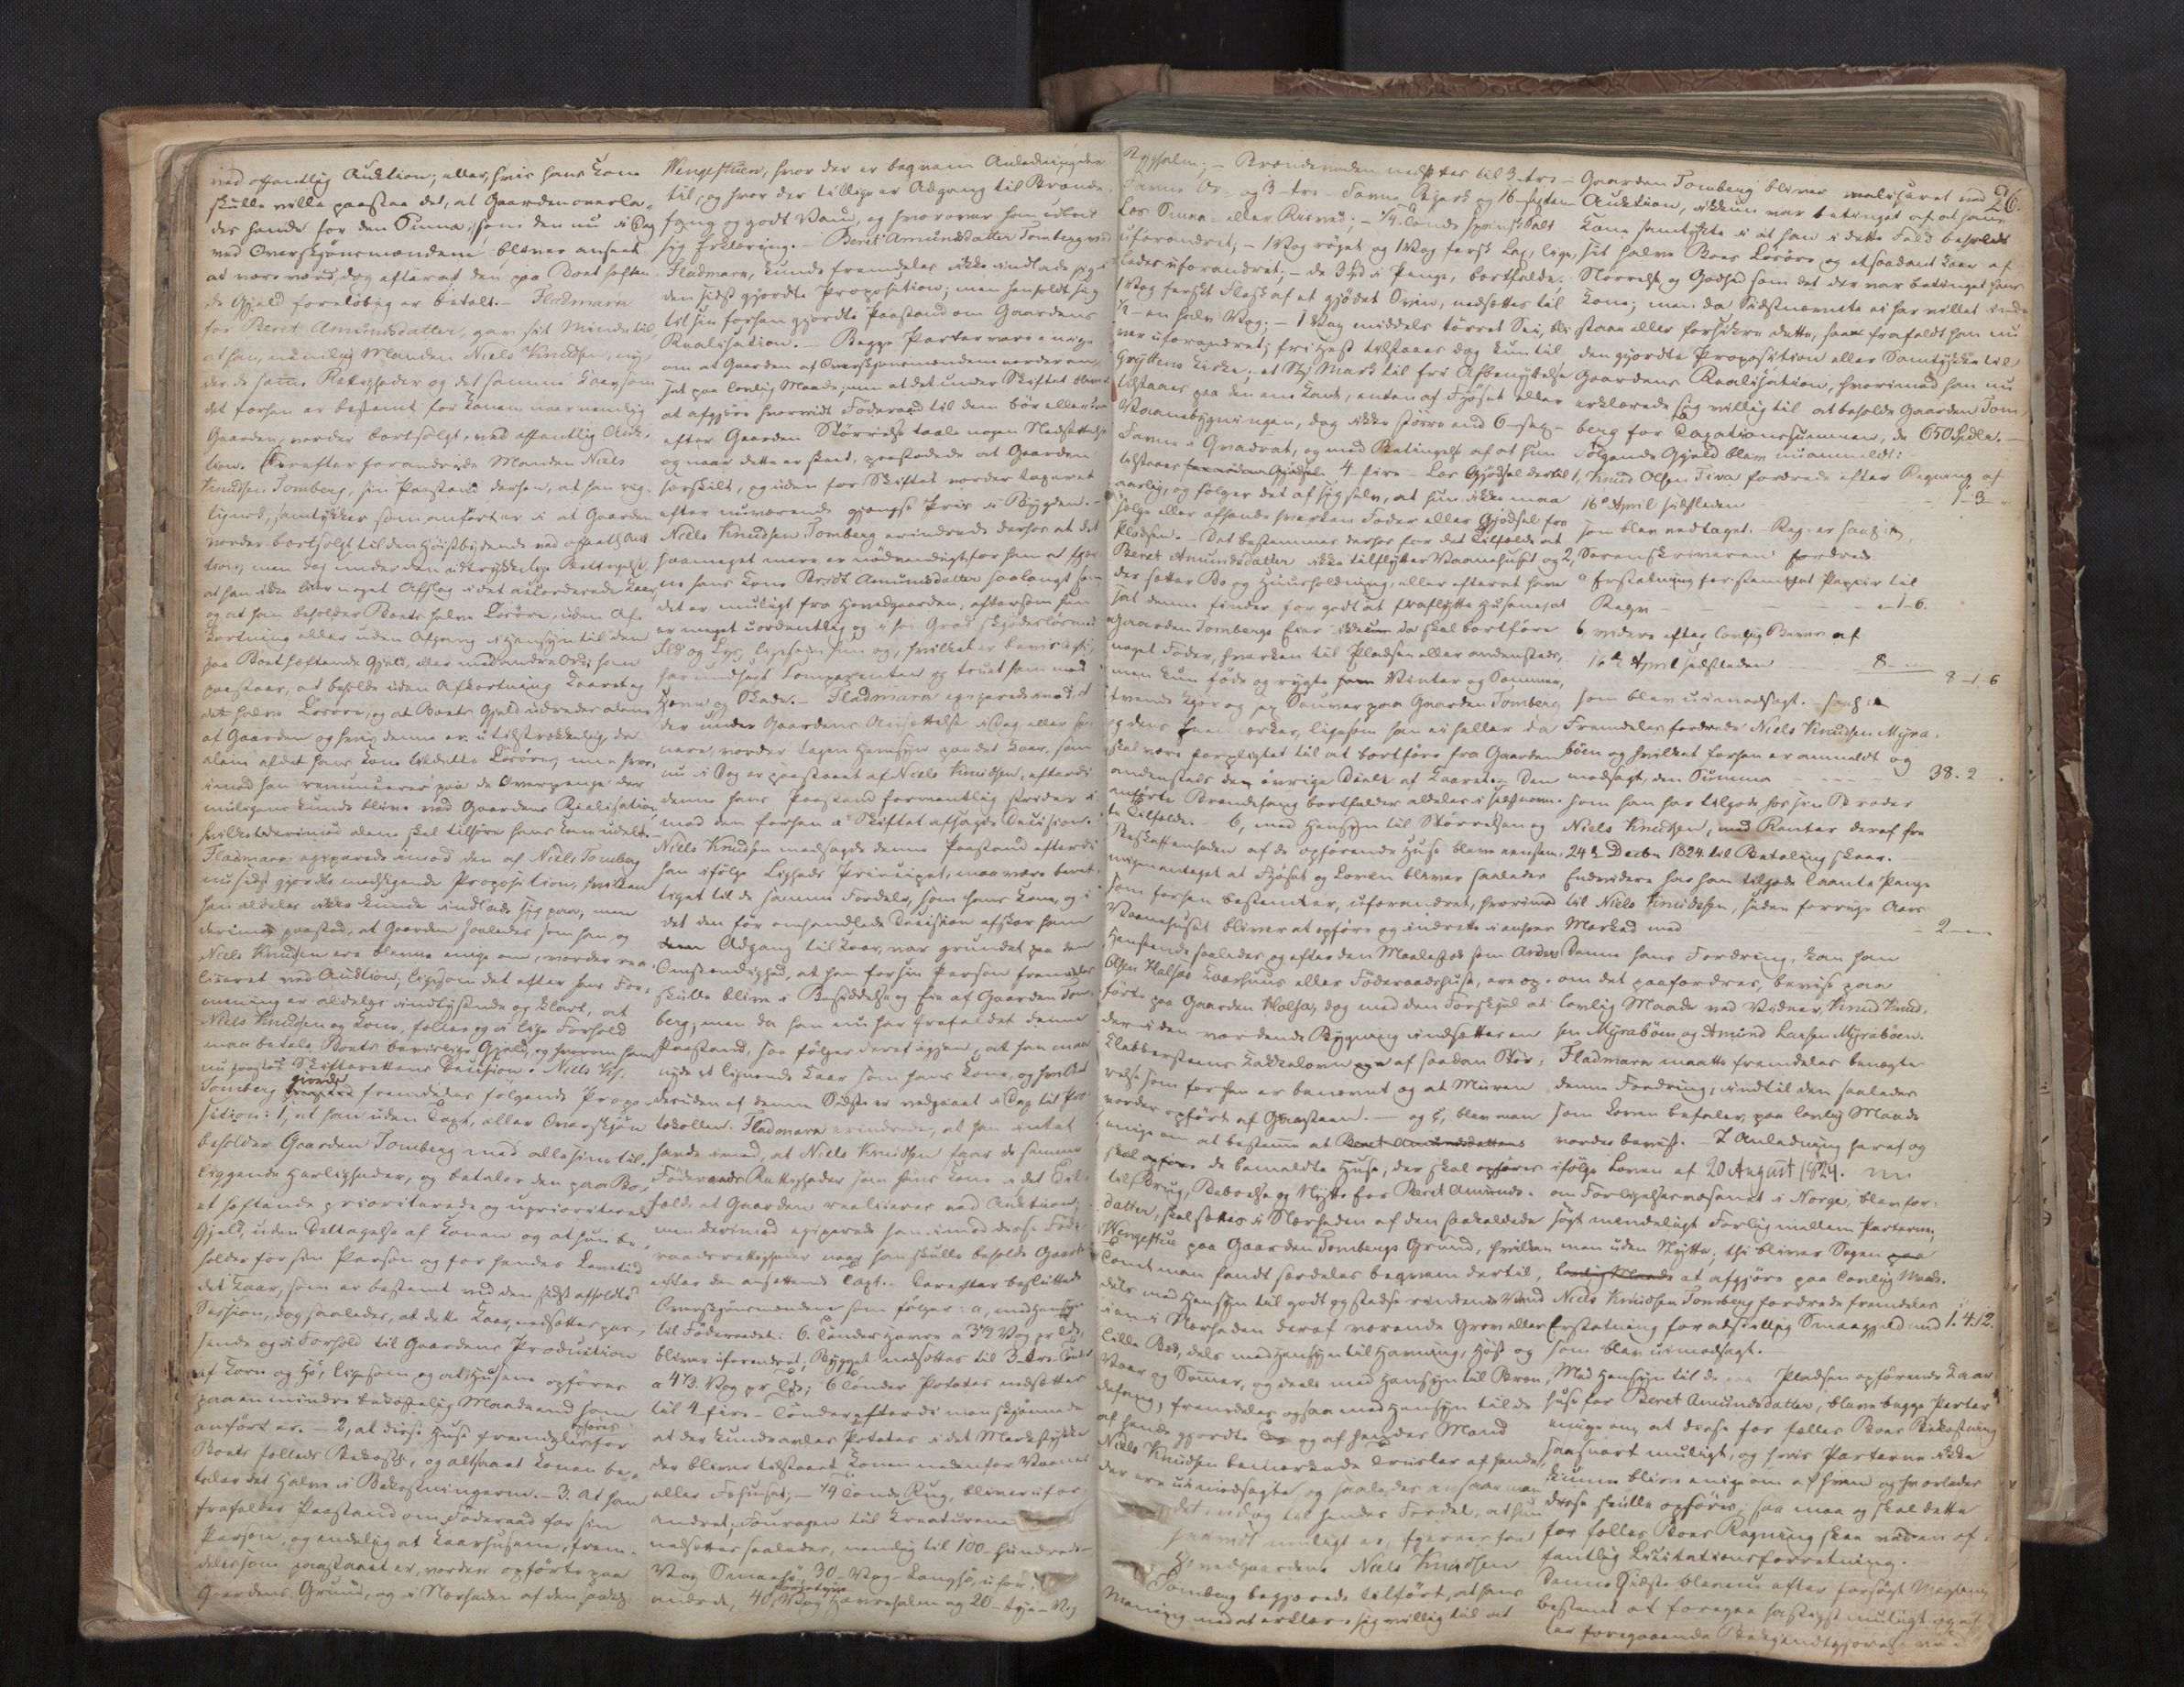 ved offentlig Auction; eller, hvis hans Kone
skulle ville paastaae det, at Gaarden overla-
des hende for den Summa, som den nu i Dag
ved Overskjønsmændene bliver anseet
at være værd, dog efterat den paa Boet hæften-
de Gjeld foreløbig er betalt. - Fladmark
for Beret Amundsdatter, gav sit Minde til
at han, nemlig Manden Niels Knudsen, ny-
der de samme Rettigheder og det samme Kaar som
det forhen er bestemt for Konen, naar nemlig
Gaarden, vorder bortsolgt, ved offentlig Auk-
tion. Herefter forandrede Manden Niels
Knudsen Tomberg, sin Paastand derhen, at han vel
samtykker som anført er i at Gaarden
vorder bortsolgt til den Høistbydende ved offentlig Auk-
tion, men dog under den udtrykkelige Betingelse,
at han ikke lider noget Afslag i det accorderede Kaar,
og at han beholder Boets halve Løsøre, uden Af-
kortning eller uden Afgang i Hensyn til den
paa Boet hæftende Gjeld, eller med andre Ord: han
paastaar, at beholde uden Afkortning Kaaret og
det halve Løsøre, og at Boets Gjeld udredes alene
af Gaarden og hvis denne er utilstrækkelig, da
alene af det hans Kone tildeelte Løsøre, men hvor-
imod han renuncerer paa de Overpenge der
muligens kunde blive ved Gaardens Realisation,
hvilke derimod alene skal tilhøre hans Kone udelt. -
Fladmark exciperede imod den af Niels Tomberg
nu sidst gjordte modsigende Proposition, hvilken
han aldeles ikke kunde indlade sig paa, men
derimod paastod, at Gaarden saaledes som han og
Niels Knudsen ere blevne enige om, vorder rea-
liseret ved Auction, ligesom det efter hans For-
mening er aldeles indlysende og klart, at
Niels Knudsen og Kone, fælles og i lige Forhold
maa betale Boets beviislige Gjeld, og hvorom han
nu paastod Skifterettens Decision. Niels Ks.
Tomberg gjorde fremdeles følgende Propo-
sition: 1, at han uden Taxt, eller Overskjøn
beholder Gaarden Tomberg med alle sine til-
liggende Herligheder, og betaler den paa Bo-
et hæftende prioriterede og uprioriterede
Gjeld, uden Deltagelse af Konen og at hun be-
holder for sin Person og for hendes Levetid
det Kaar, som er bestemt ved den sidst afholdte
Session, dog saaledes, at dette Kaar nedsættes pas-
sende og i Forhold til Gaardens Production
af Korn og Hø, ligesom og at Husene opføres
paa en mindre bekostelig Maade end som
anført er. - 2, at disse Huse fremdeles opføres for
Boets fælleds Bekostn., og altsaa at Konen be-
taler det Halve i Bekostningerne. - 3. At han
frafalder Paastand om Føderaad for sin
Person, og endelig at Kaarhusene, frem-
deles som paastaaet er, vorder opført paa
Gaardens Grund, og i Nærheden af den saakaldte
Wengestuen, hvor der er beqvem Anledning der-
til, og hvor der tillige er Adgang til Brænde-
fang og godt Vand, og hvorover han udbad
sig Erklæring. - Beret Amundsdatter Tomberg ved
Fladmark, kunde fremdeles ikke indlade sig i
den sidst gjordte Proposition; men henholdt sig
til sin forhen gjordte Paastand om Gaardens
Realisation. - Begge Parter vare enige
om at Gaarden af Overskjønsmændene vorder an-
sat paa lovlig Maade, men at det under Skiftet bliver
at afgjøre hvorvidt Føderaad til dem bør eller kan
efter Gaarden Størrelse taale nogen Nedsættelse
og naar dette er skeet, paastodede at Gaarden
særskilt, og uden for Skiftet vorder taxeret
efter nuværende gjængse Priis i Bygden. -
Niels Knudsen Tomberg erindrede derhos at det
saameget mere er nødvendigt for ham at fjer-
ne hans Kone Beridt Amundsdatter saalangt som
det er muligt fra Hovedgaarden, eftersom hun
er meget uordentlig og i høi Grad skjødesløs med
Ild og Lys, ligesom hun og, hvilket er beviseligt,
har undsagt Comparenten og truet ham med
Hævn og Skade. - Fladmark exciperede imod, at
der under Gaardens Ansættelse i Dag eller se-
nere, vorder tagen Hensyn paa det Kaar, som
nu i Dag er paastaaet af Niels Knudsen, efterdi
denne hans Paastand formentlig strider i-
mod den forhen i Skiftet afsagde Decision. -
Niels Knudsen modsagde denne Paastand efterdi
han ifølge Ligheds Principet, maa være beret-
tiget til de samme Fordele, som hans Kone, og i
det den før omhandlede Decision afskar ham
Adgang til Kaar, var grundet paa den
Omstændighed, at han for sin Person fremdeles
skulle blive i Besiddelse og Eie af Gaarden Tom-
berg; men da han nu har frafaldet denne
Paastand, saa følger deraf igjen, at han maa
nyde et lignende Kaar som hans Kone, og hvilket
desuden af denne Sidste er vedgaaet i Dag til Pro-
tokollen. Fladmark erindrede, at han intet
havde imod, at Niels Knudsen faar de samme
Føderaads Rettigheder som hans Kone i det Til-
fælde at Gaarden realiseres ved Auktion,
men derimod exciperede han imod disse Føde-
raadsrettigheder naar han skulle beholde Gaarden
efter den ansættende Taxt. - Derefter besluttede
Overskjønsmændene som følger: a, med Hensyn
til Føderaadet: 6. Tønder Havre a 3 1/2 Vog pr. Tde.
bliver uforandret; Bygget nedsættes til 3 - tre - Tønder
a 4 1/3. Vog pr. Tde; 6 Tønder Potetes nedsættes
til 4 - fire - Tønder efterdi man skjønnede
at der kunde avles Potetes i det Markstykke
der bliver tilstaaet Konen nedenfor Vaane-
eller Fehuset; - 1/4 Tønde Rug, bliver ufor-
andret; Fouragen til Kreaturene
nedsættes saaledes, nemlig til 100 - hundrede -
Vog Smaahø, 30 - Vog - Langhø, ufor-
andrede, 40, Vog Havrehalm og 20 - tyve - Vog
26.
Byghalm; - Brændeveden nedsættes til 3 - tre -
Favne Or- og 3 - tre - Favne Bjerk og 16 - sexten
Læs Smaa- eller Riisved; - 1/4. Tønde Spanskt Salt
uforandret; - 1 Vog røget og 1 Vog fersk Lax, lige-
ledes uforandret; - de 3 Spd i Penge, bortfalde. -
1 Vog ferskt Flesk af et gjødet Sviin, nedsættes til
1/2 - en halv Vog; - 1 Vog middels tørret Sei, bli-
ver uforandret; fri Hest tilstaaes dog kun til
Gryttens Kirke; et Stk Mark til fri Afbenyttelse
tilstaaes paa den ene Kant, enten af Fjøset eller
Vaanebygningen, dog ikke større end 6 - sex -
Favne i Quadrat, og med Betingelse af at hun
tilstaaes 4 - fire - Læs Gjødsel dertil
aarlig, og følger det af sig selv, at hun ikke maa
sælge eller afhænde hverken Foder eller Gjødsel fra
Pladsen. - Det bestemmes derhos for det Tilfælde at
Beret Amundsdatter ikke tilflytter Vaanehuset og
der sætter Bo og Huusholdning, eller efterat have
sat denne finder for godt at fraflytte Husene, at
Gaarden Tombergs Eier da skal bortføre
noget Foder, hverken til Pladsen eller andensteds,
men kun føde og røgte Vinter og Sommer,
tvende Kjør og sex Sauer paa Gaarden Tomberg
og dens , ligesom han ei heller da
skal være forpligtet til at bortføre fra Gaarden
andensteds den øvrige Deel af Kaaret. - Den
anførte Brændefang bortfalder aldeles i sidstnævn-
te Tilfælde. - b, med Hensyn til Størrelsen og
Beskaffenheden af de opførende Huse bleve eensom-
migen antaget at Fjøset og Løen bliver saaledes
som forhen bestemt er, uforandret, hvorimod
Vaanehuset bliver at opføre og indrette i
Henseende saaledes og efter den Maalestok som Anders
Olsen Halsas Kaarhuus eller Føderaadshuse, ere op-
førte paa Gaarden Halsa, dog med den Forskjel at
der i den vordende Bygning indsættes en
Klæbbersteens Kakkelovn af saadan Stør-
relse som forhen er benævnt og at Muren
vorder opført af Graasteen. - og c, blev man
enige om at bestemme at
skal opføre de bemeldte Huse, der skal opføres
til Brug, Beboelse og Nytte for Beret Amunds-
datter, skal sættes i Nærheden af den saakaldede
Wengestue paa Gaarden Tombergs Grund, hvilken
Tomt man fandt særdeles beqvem dertil,
dels med Hensyn til godt og stedse rindende Vand
i en i Nærheden deraf værende Grov eller
lille Bæk, dels med Hensyn til Havning, Høst og
Vaar og Sommer, og deels med Hensyn til Bræn-
defang, fremdeles ogsaa med Hensyn til de
af hende gjordte og af hendes Mand
Niels Knudsen bemærkede Trusler af hende,
der ere uimodsagte og saaledes ansaae man
det, og til hendes Fordel, at hun
saavidt muligt er, fjernes fra
Hovedgaarden. Niels Knudsen
Tomberg begjerede tilført, at hans
Mening med at erklære sig villig til at
Gaarden Tomberg bliver realiseret ved
Auktion, ikkun var betinget af at hans
Kone samtykte i at han i dette Fald beholdt
sit halve Boes Løsøre og et saadant Kaar af
Størrelse og Godhed som det der var betinget hans
Kone; men, da Sidstnævnte ei har villet ind-
staae eller forsikre dette, saa frafaldt han nu
den gjordte Proposition eller Samtykke til
Gaardens Realisation, hvorimod han nu
erklærede sig villig til at beholde Gaarden Tom-
berg for Taxationssummen, de 650 Spdlr. -
Følgende Gjeld blev nu anmeldt:
1, Knud Olsen Fiva fordrede efter Regning af
16de April sidstleden - 1 - 3 -
som blev vedtaget. - Regn. er saal:
2, Sorenskriveren fordred
a Erstatning for stemplet Papiir til
Regn - - - - 1 - 6.
b, videre efter lovlig Beviis af
16de April sidstleden - 8 - -
8 - 1 - 6
som blev uimodsagt. saal:
Fremdeles fordrede Niels Knudsen Myra-
bøen og hvilket forhen er anmeldt og
modsagt, den Summa - - 38. 2 -
som han har tilgode hos sin Broder
Niels Knudsen, med Renter deraf fra
24de Decbr. 1824. til Betaling skeer. -
Endvidere har han tilgode laante Penge
til Niels Knudsen, siden forrige Aars
Marked med - 2 - -
Denne hans Fordring, kan han
om det paafordres, bevise paa
lovlig Maade ved Vidner, Knud Knud-
sen Myrabøen og Amund Larsen Myrabøen.
Fladmark maatte fremdeles benægte
denne Fordring, indtil den saaledes
som Loven befaler, paa lovlig Maade
vorder bevist. - I Anledning heraf og
ifølge Loven af 20 August 1824.
om Forligelsesvæsenet i Norge, blev for-
søgt mindeligt Forlig mellem Parterne,
men uden Nytte, thi bliver Sagen
at afgjøre paa lovlig Maade.
Niels Knudsen Tomberg fordrede fremdeles
Erstatning for adskillig Smaagjeld med 1. 4. 12.
som blev uimodsagt.
Med Hensyn til de paa Pladsen opførende Kaar-
huse for Beret Amundsdatter, bleve begge Parter
enige om, at disse for fælles Boes Bekostning
saasnart muligt, og hvis Parterne ikke
kunne blive enige om af hvem og hvorledes
disse skulle opføres, saa maa og skal dette
for fælles Boes Regning skee ved en of-
fentlig Licitationsforretning.
Denne Sidste blev nu efter forsøgt Mægling
bestemt at foregaae hastigst muligt og ef-
ter foregaaende Bekjendtgjørelse ved